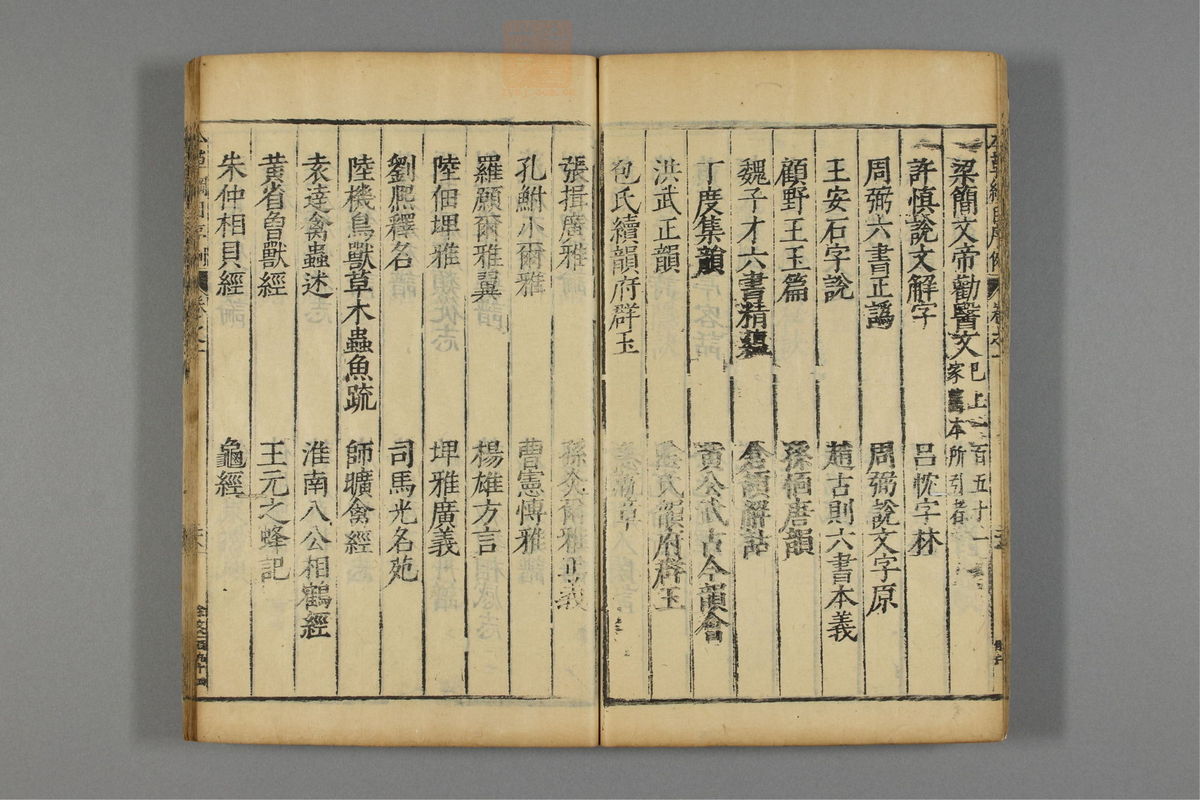 梁簡文帝勸醫文 已上一百五十一家舊本所引者
許慎說文解字 呂忱字林
周弼六書正譌 周弼說文字原
王安石字說 趙古則六書本義
顧野王玉篇 孫愐唐韻
魏子才六書精蘊 倉頡解詁
丁度集韻 黃公武古今韻會
洪武正韻 陰氏韻府群玉
包氏續韻府群玉
張揖廣雅 孫炎爾雅正義
孔鮒小爾雅 曹憲博雅
羅願爾雅翼 楊雄方言
陸佃埤雅 埤雅廣義
劉熈釋名 司馬光名苑
陸機鳥獸草木蟲魚疏 師曠禽經
袁達禽蟲述 淮南八公相鶴經
黃省曾獸經 王元之蜂記
朱仲相貝經 龜經